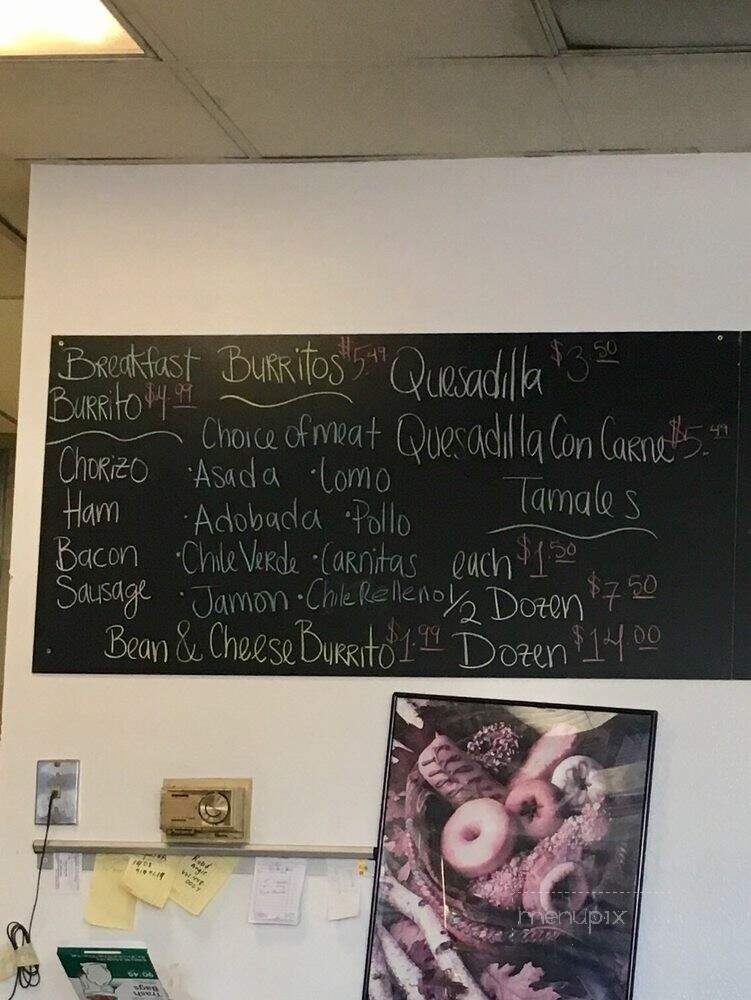 Breakfast
Burrito $4.99
Chorizo
Ham
Bacon
Sausage
Burritos $5.49
Choice of meat
·Asada ·Lomo
·Adobada ·Pollo
·Chile Verde ·Carnitas
·Jamon ·Chile Relleno
Bean & Cheese Burrito $1.99
Quesadilla $3.50
Quesadilla Con Carne $5.49
Tamales
each $1.50
1/2 Dozen $7.50
Dozen $14.00
menupix
Trash
Bags